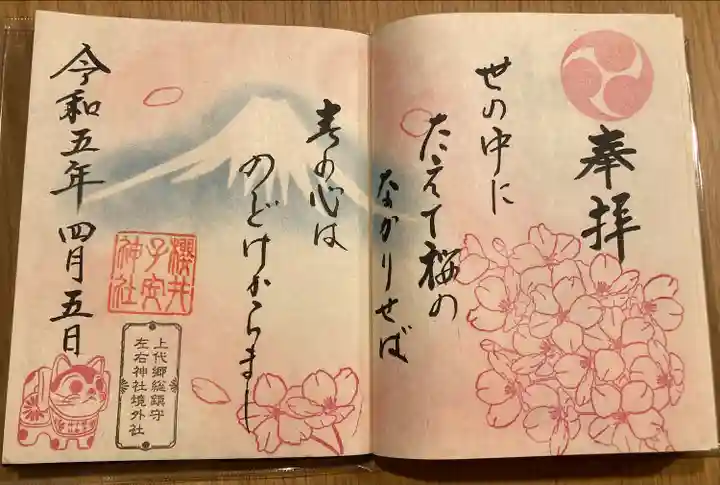 奉拝
世の中に
たえて桜の
なかりせば
春の心は
のどけからまし
令和五年 四月五日
櫻井
子安
神社
上代郷総鎮守
左右神社境外社